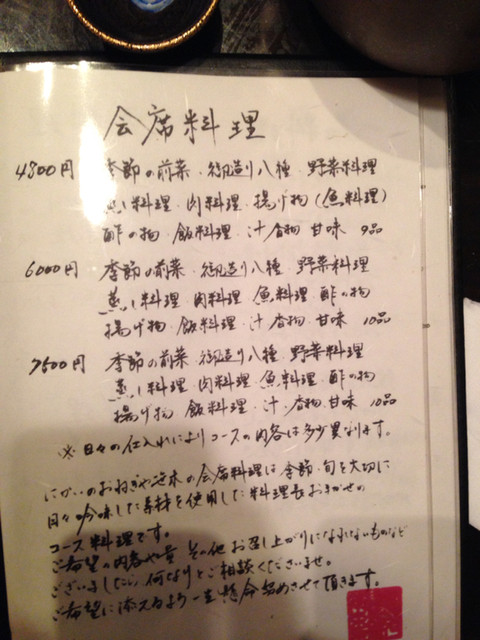 会席料理
4800円 季節の前菜・御造り八種・野菜料理
蒸し料理・肉料理・揚げ物(魚料理)
酢の物 飯料理・汁・香物 甘味 9品
6000円 季節の前菜・御造り八種・野菜料理
蒸し料理・肉料理 魚料理 酢の物
揚げ物 飯料理・汁・香物・甘味 10品
7500円 季節の前菜・御造り八種・野菜料理
蒸し料理 肉料理・魚料理・酢の物
揚げ物 飯料理・汁・香物・甘味 10品
※日々の仕入れによりコースの内容は多少異なります。
の会席料理は季節・旬を大切に
日々吟味した素材を使用した料理長おまかせの
コース料理です。
ご希望の内容や量 その他お召し上がりになれないものなど
ございましたら何なりとご相談くださいませ。
ご希望に添えるよう一生懸命努めさせて頂きます。